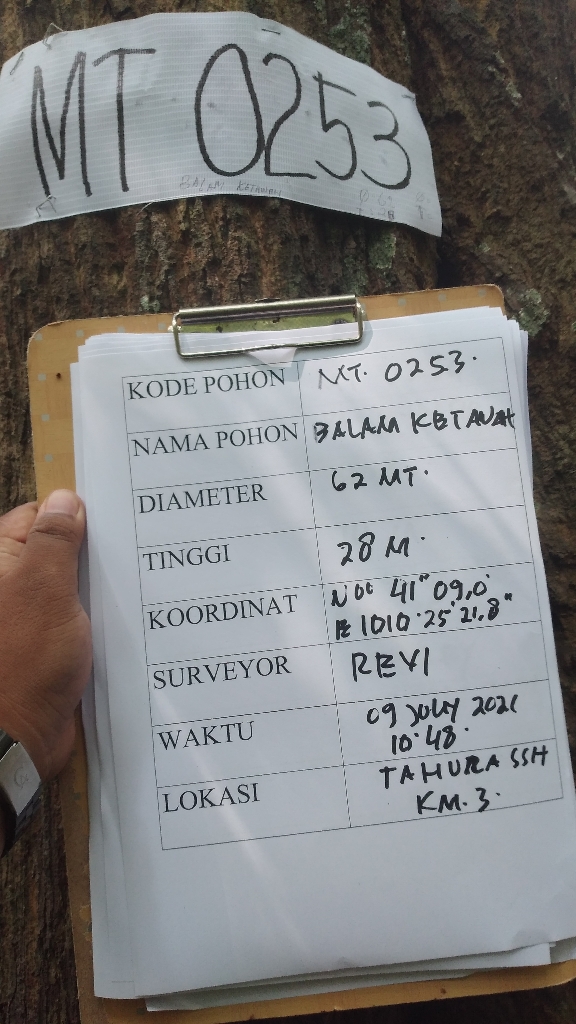 MT 0253
BALAM KETANAH
KODE POHON MT. 0253.
NAMA POHON BALAM KETANAH
DIAMETER 62 MT.
TINGGI 28 M.
KOORDINAT N 00° 41" 09,0'
E 1010·25' 21.8"
SURVEYOR REVI
WAKTU 09 JULY 2021
10·48·
LOKASI TAHURA SSH
KM. 3.